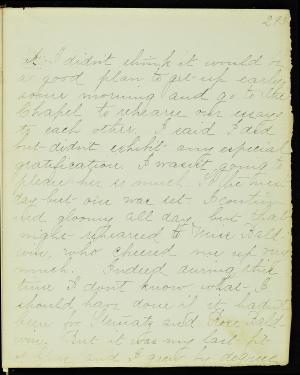 293
if I didn't think it would be
a good plan to get up early
some morning and go to the
Chapel to rehearse our essays
to each other. I said I did
but didn't exhibit any especial
gratification. I wasn't going to
please her so much. So the next
day but one was set. I continu-
ed gloomy all day, but that
night rehearsed to Miss Bald-
win, who cheered me up very
much. Indeed during this
time I don't know what I
should have done if it hadn't
been for and Bald-
win. But it was my last fit
and I grew by degrees